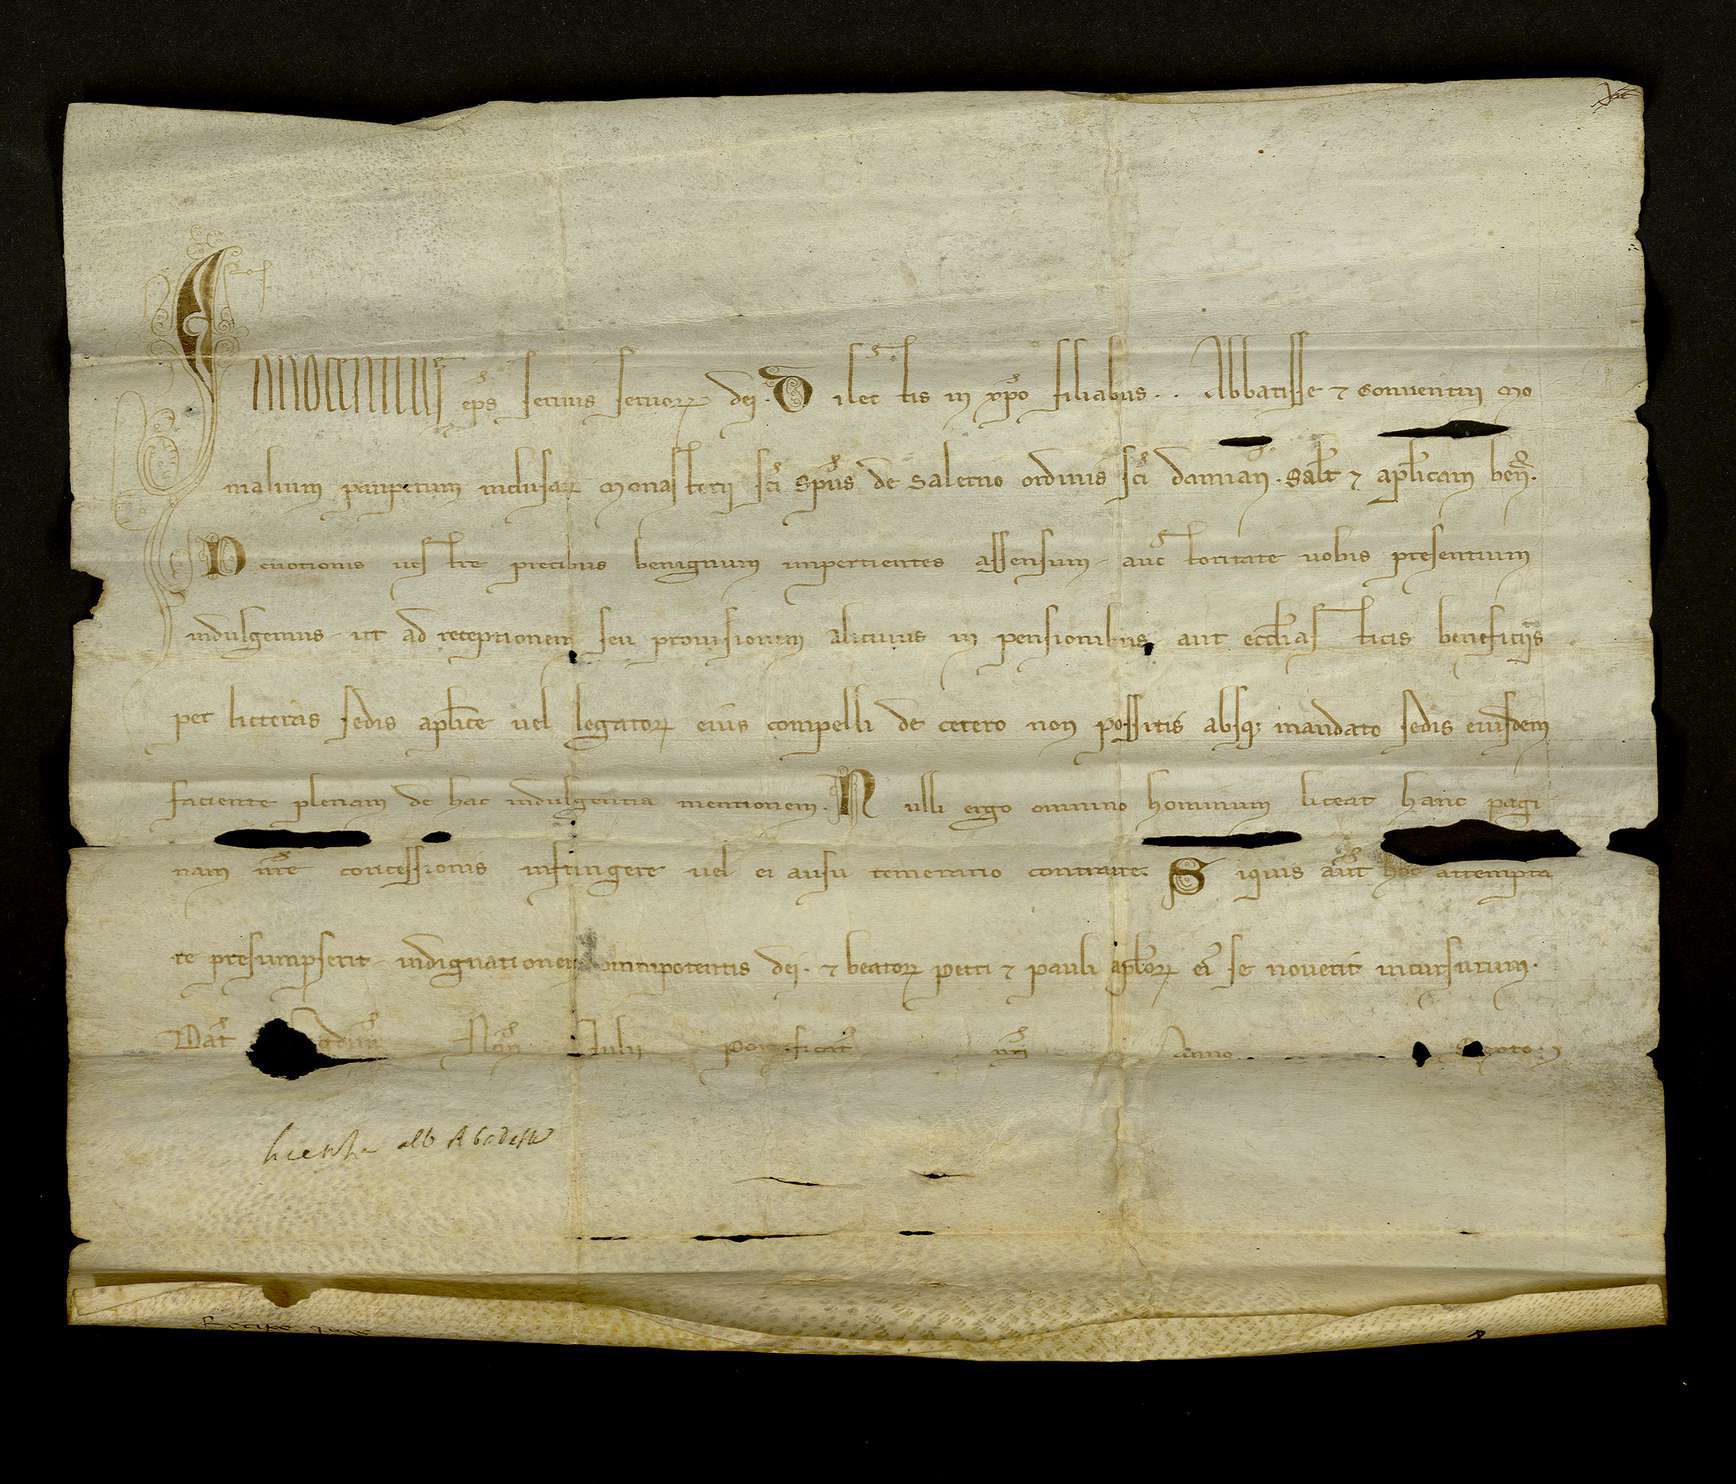 Innocentius ep̄s seruus seruoꝝ dei. Dilectis in xp̄o filiabus . . Abbatisse ⁊ Conuentui Mo
nialium pauperum inclusaꝝ Monasterij sc̄i Sp̄us de Salerno ordinis sc̄i Damiani. Salt̄ ⁊ apl̄icam ben̄.
Deuotionis uestre precibus benignum impertientes assensum auctoritate uobis presentium
indulgemus ut ad receptionem seu prouisionem alicuius in pensionibus aut ecc̄liasticis beneficijs
per litteras sedis apl̄ice uel legatoꝝ eius compelli de cetero non possitis absqꝫ mandato sedis eiusdem
faciente plenam de hac indulgentia mentionem. Nulli ergo omnino hominum liceat hanc pagi
nam nr̄e concessionis infringere uel ei ausu temerario contraire. Siquis aut̄ hoc attempta
re presumpserit indignationem omnipotentis dei. ⁊ beatoꝝ Petri ⁊ Pauli apl̄oꝝ ei᷑ se nouerit incursurum.
Dat̄ Non̄ Iulii Pontificat̄ nr̄i Anno